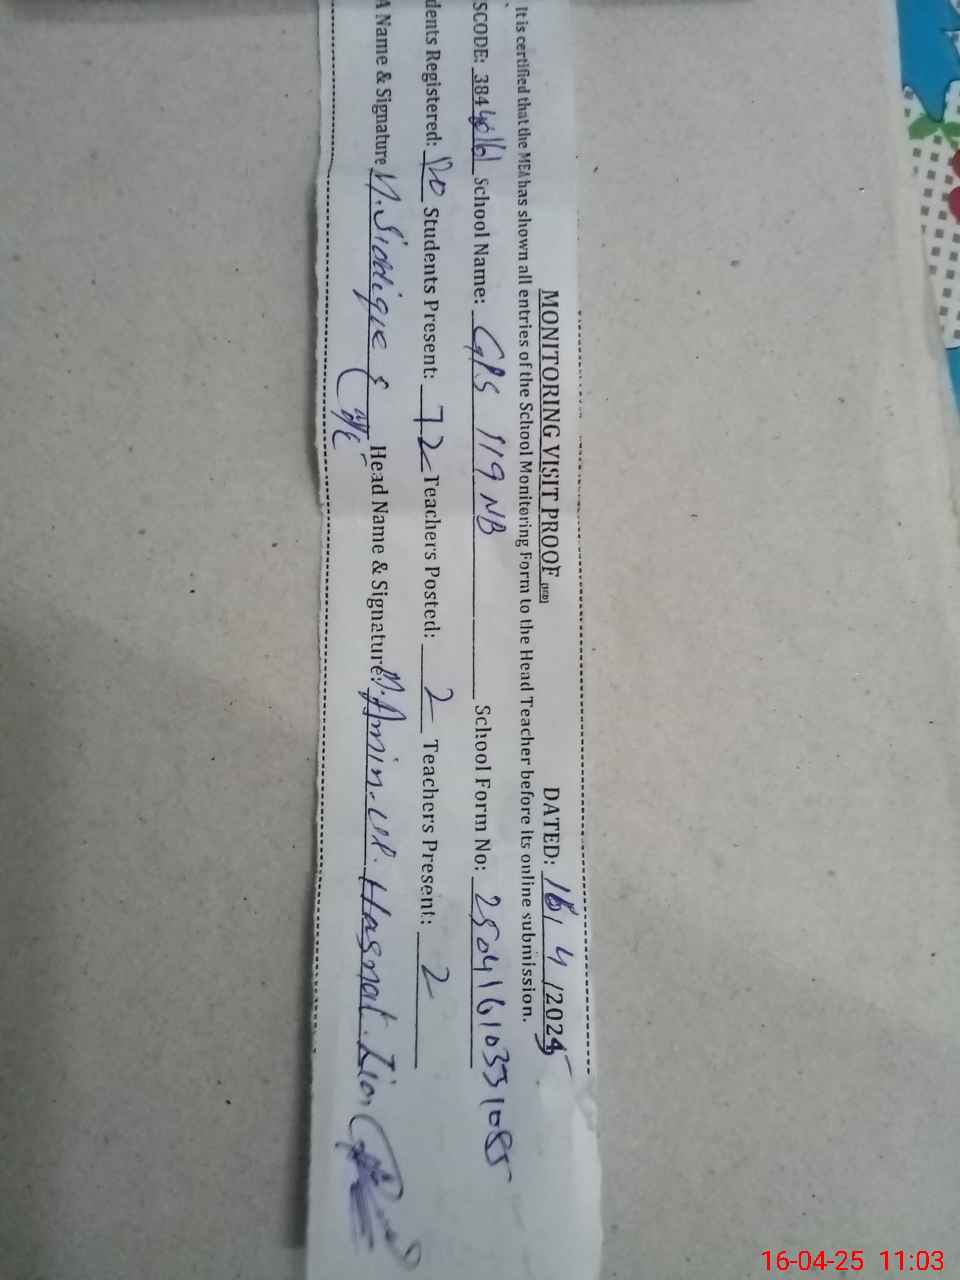 MONITORING VISIT PROOF (MB) DATED: 16/4/2025
It is certified that the MEA has shown all entries of the School Monitoring Form to the Head Teacher before its online submission.
SCODE: School Name: GPS 119 NB School Form No:
dents Registered: Students Present: 72 Teachers Posted: 2 Teachers Present: 2
A Name & Signature M. Siddique Head Name & Signature: M. Amin. Ul. Hasnat.
16-04-25 11:03